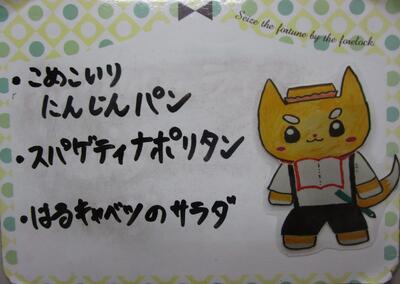 Seize the fortune by the forelock.
・こめこいり
にんじんパン
・スパゲティナポリタン
・はるキャベツのサラダ